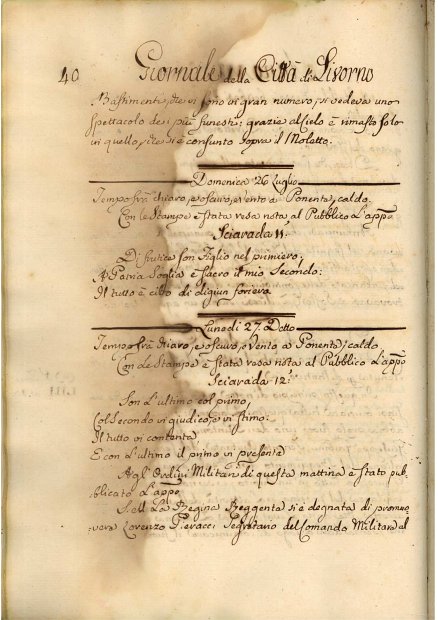 40 Giornale della Città di Livorno
Bastimenti, che vi sono in gran numero, si vedeva uno
spettacolo de i più funesti; grazie al Cielo è rimasto solo
in quello, che si è consunto sopra il Moletto.
Domenica 26 Luglio
Tempo frà chiaro, e oscuro, e Vento a Ponente; caldo.
Con le Stampe è stata resa nota al Pubblico l'appo
Sciarada 11:
Di fatica son Figlio nel primiero;
A Patria Soglia è sacro il mio Secondo:
Il tutto è cibo di digiun foriero
Lunedì 27. Detto
Tempo frà chiaro, e oscuro, e Vento a Ponente; caldo.
Con le Stampe è stata resa nota al Pubblico l'appo
Sciarada 12:
Son l'ultimo col primo,
Col Secondo vi giudico, e vi stimo:
Il tutto vi contenta
E con l'ultimo il primo vi presenta
Agl' Ordini Militari di questa mattina è stato pub-
blicato l'appo
S. M. La Regina Reggente si è degnata di promuo-
vere Lorenzo Pieracci Segretario del Comando Militare al